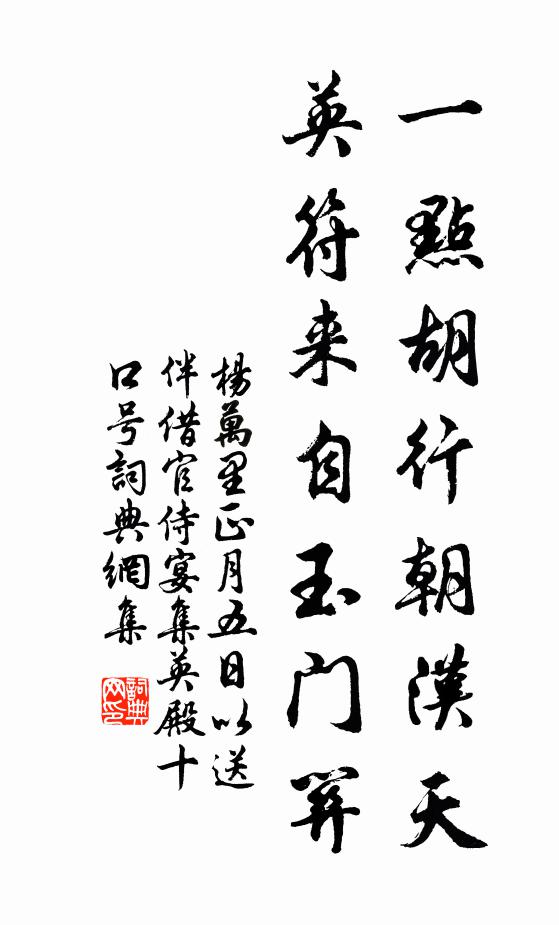 一點胡行朝漢天
英符来自玉门关
楊萬里正月五日以送
伴借官侍宴集英殿十
口号詞典網集
詞典网印